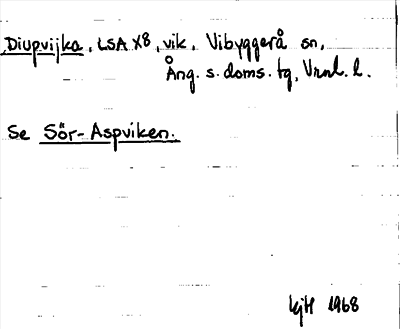 Diupvijka, LSA X8, vik, Vibyggerå sn,
Ång. s. doms. tg, Vrnl. l.
Se Sör-Aspviken.
1968